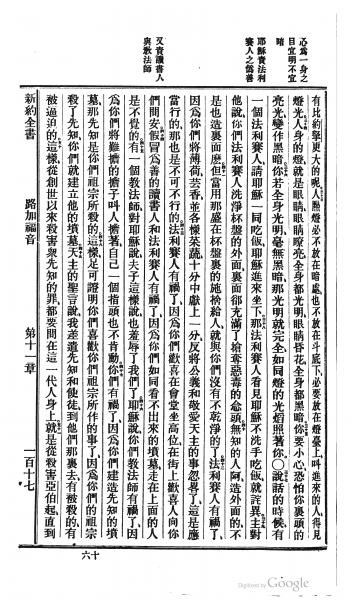 心為一身之
目宜明不宜
暗
耶穌責法利
賽人之偽善
又責讀書人
與教法師
有比約拏更大的呢人點燈必不放在暗處也不放在斗底下必要放在燈臺上叫進來的人得見
燈光人身的燈就是眼睛眼睛瞭亮全身都光明眼睛昏花全身都黑暗你要小心恐怕你裏頭的
亮光變作黑暗你若全身光明毫無黑暗那光明就完全如同燈的光燄照著你○說話的時候有
一個法利賽人請耶穌一同吃飯耶穌進來坐下那法利賽人看見耶穌不洗手吃飯就詫異主對
他說你們法利賽人洗淨杯盤的外面裏面卻充滿了搶奪惡毒的念頭無知的人阿造外面的不
是也造裏面麼但當用那盛在杯盤裏的施捨給人就與你們沒有不乾淨的了法利賽人有禍了
因為你們將薄荷芸香並各樣菜蔬十分中獻上一分反將公義和敬愛天主的事忽畧了這是應
當行的那也是不可不行的法利賽人有禍了因為你們歡喜在會堂坐高位在街上歡喜人向你
們問安假冒為善的讀書人和法利賽人有禍了因為你們如同看不出來的墳墓走在上面的人
是不覺的有一個教法師對耶穌說夫子這樣說也羞辱了我們了耶穌說你們教法師有禍了因
為你們將難擔的擔子叫人擔著自己一個指頭也不肯動你們有禍了因為你們建造先知的墳
墓那先知是你們祖宗所殺的這樣足可證明你們喜歡你們祖宗所作的事了因為你們的祖宗
殺了先知你們就建立他的墳墓天主的聖言說我差遣先知和使徒到他們那裏去有被殺的有
被逼迫的這樣從創世以來殺害眾先知的罪都要問在這一代人身上就是從殺害亞伯起直到
新約全書 路加福音 第十一章 一百十七
六十
Digitized by Google